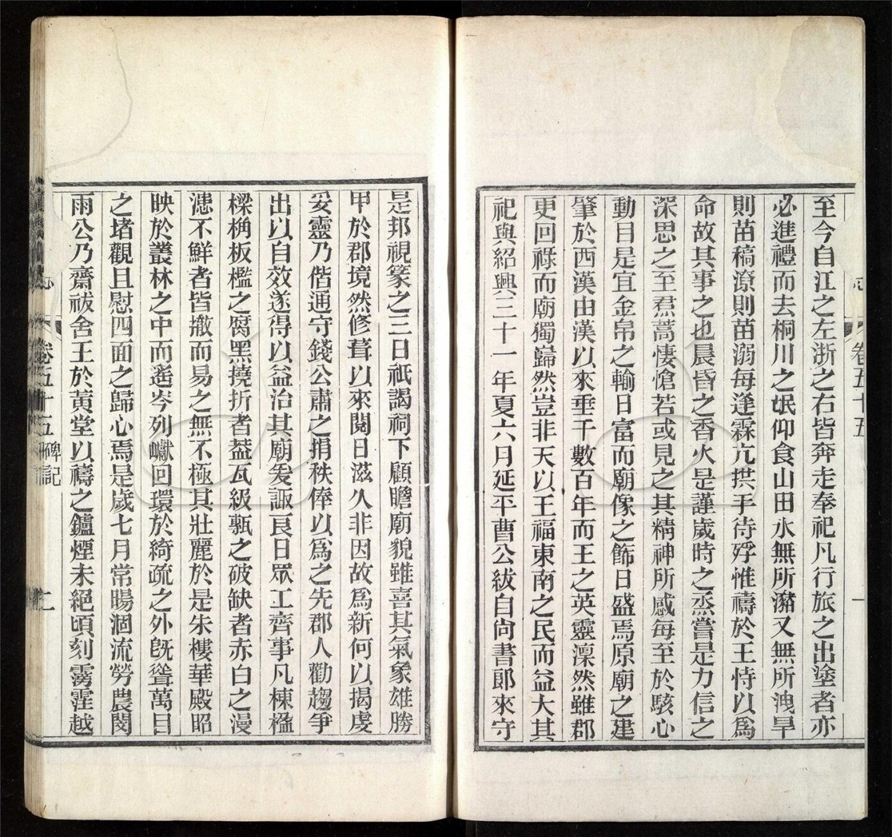 至今自江之左浙之右皆奔走奉祀凡行旅之出塗者亦
必進禮而去桐川之氓仰食山田水無所瀦又無所洩旱
則苗稿潦則苗溺每逢霖亢拱手待殍惟禱於王恃以為
命故其事之也晨昏之香火是謹歲時之烝嘗是力信之
深思之至焄蒿悽愴若或見之其精神所感每至於駭心
動目是宜金帛之輸日富而廟像之飾日盛焉原廟之建
肇於西漢由漢以來垂千數百年而王之英靈澟然雖郡
更回祿而廟獨歸然豈非天以王福東南之民而益大其
祀與紹興三十一年夏六月延平曹公紱自尙書郞來守
卷五十五
一
是邦視篆之三日祇謁祠下顧瞻廟貌雖喜其氣象雄勝
甲於郡境然修葺以來閱日滋久非因故為新何以揭虔
妥靈乃偕通守錢公肅之捐秩俸以為之先郡人勸趨爭
出以自效遂得以益治其廟爰諏良日眾工齊事凡棟楹
樑桷板檻之腐黑撓折者葢瓦級甎之破缺者赤白之漫
漶不鮮者皆撤而易之無不極其壯麗於是朱樓華殿昭
映於叢林之中而遙岑列巘回環於綺疏之外旣聳萬目
之堵觀且慰四面之歸心焉是歲七月常暘涸流勞農閔
雨公乃齋祓舍王於黃堂以禱之鑪煙未絕頃刻雱霔越
志
卷五十五
碑記
二